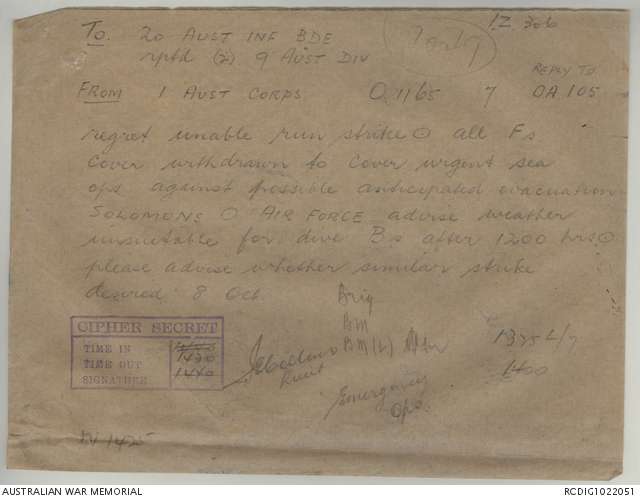 1Z 306
To 20 AUST INF BDE
rptd (2) 9 AUST DIV
REPLY TO
FROM 1 AUST CORPS O.1165 7 OA 105
regret unable run strike ⊙ all Fs
cover withdrawn to cover urgent sea
ops against possible anticipated evacuation
SOLOMONS ⊙ AIR FORCE advise weather
unsuitable for dive Bs after 1200 hrs ⊙
please advise whether similar strike
desired 8 Oct
Brig
BM
BM(L)
CIPHER SECRET
TIME IN
TIME OUT 1430
SIGNATURE 1440
Lieut
1345 L/7
1400
Emergency
Ops.
1425
AUSTRALIAN WAR MEMORIAL
RCDIG1022051